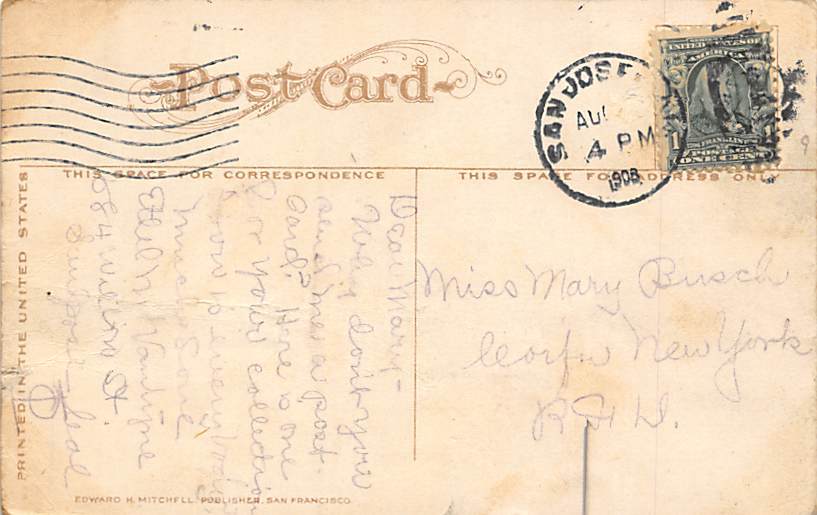 Post Card
SAN JOSE
AUG
4 PM
1908
UNITED STATES OF
AMERICA
1 1
FRANKLIN
POSTAGE
ONE CENT
9
THIS SPACE FOR CORRESPONDENCE
THIS SPACE FOR ADDRESS ONLY
PRINTED IN THE UNITED STATES
Dear Mary-
Why don't you
send me a post.
Card. Here is one
for your collection
Love to everybody
much love
Ethel Vantyne
St
Miss Mary Busch
Corfu New York
R.F.D.
EDWARD H. MITCHELL, PUBLISHER, SAN FRANCISCO